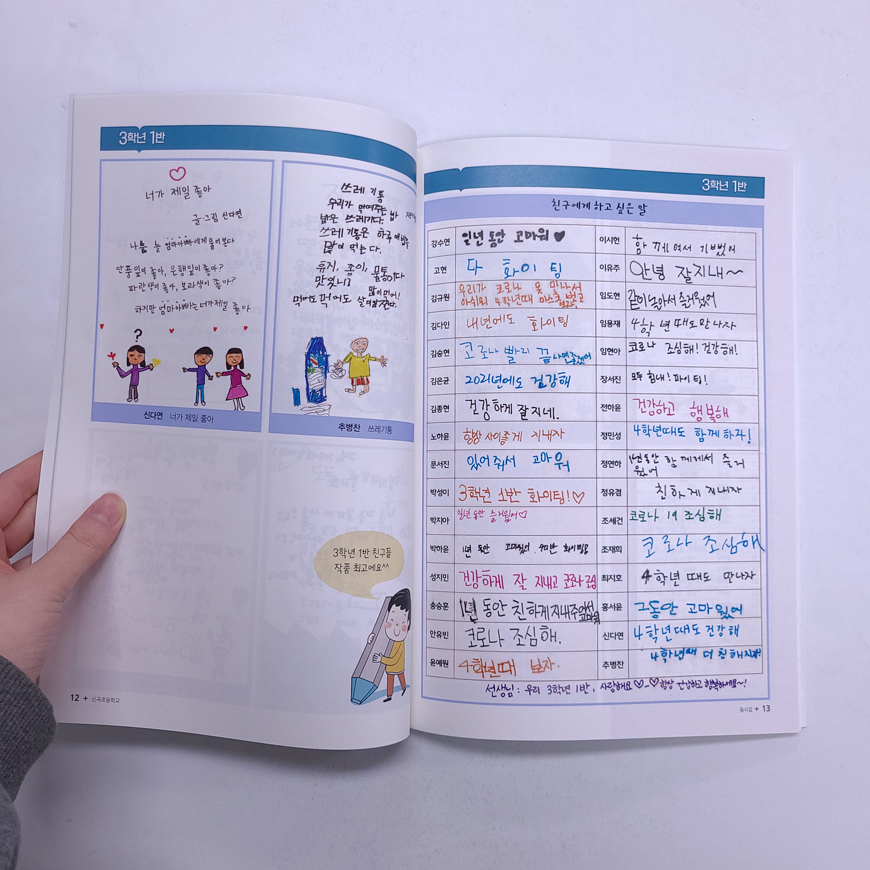 3학년 1반
너가 제일 좋아
글·그림 신다연
나는 늘 엄마아빠에게 물어본다
단풍잎이 좋아, 은행잎이 좋아?
파란색이 좋아, 보라색이 좋아?
하지만 엄마아빠는 너가 제일 좋아
?
신다연 너가 제일 좋아
쓰레기통
우리가 먹여주는 밥
밟은 쓰레기다.
쓰레기통은 하루에 밥을
많이 먹는다.
휴지, 종이, 물통이다
맛있니? 많이 먹어!
먹어도 먹어도 살이 안찐다.
추병찬 쓰레기통
3학년 1반 친구들
작품 최고에요^^
12 + 신곡초등학교
3학년 1반
친구에게 하고 싶은 말
강수연 일년 동안 고마워 ♥
이시헌 함께여서 기뻤어
고현 다 화이팅
이유주 안녕 잘지내~
김규원 우리가 코로나 못 만나서
아쉬워 4학년때 마스크 벗고
임도현 같이 놀아서 즐거웠어
김다인 내년에도 화이팅
임용재 4학년때도 만나자
김승현 코로나 빨리 끝나면 좋겠어
임현아 코로나 조심해! 건강해!
김은균 2021년에도 건강해
장서진 모두 힘내! 파이팅!
김종현 건강하게 잘 지네.
전하윤 건강하고 행복해
노하윤 항상 사이좋게 지내자
정민성 4학년때도 함께 하자!
문서진 있어줘서 고마워
정연하 1년동안 함께해서 즐거
웠어
박성이 3학년 1반 화이팅!♡
정유겸 친하게 지내자
박지아 일년 동안 즐거웠어♡
조세건 코로나 19 조심해
박하윤 1년 동안 고마웠어 화이팅
조재희 코로나 조심해
성지민 건강하게 잘 지내고 코로나 조심
최지호 4학년때도 만나자
송승훈 1년 동안 친하게 지내주어서
고마워
홍서윤 그동안 고마웠어
안유빈 코로나 조심해.
신다연 4학년때도 건강해
윤예원 4학년때 보자.
추병찬 4학년때 더 친해지자!
선생님 : 우리 3학년 1반, 사랑해요♡-♡ 항상 건강하고 행복하세요~!
동시집 + 13